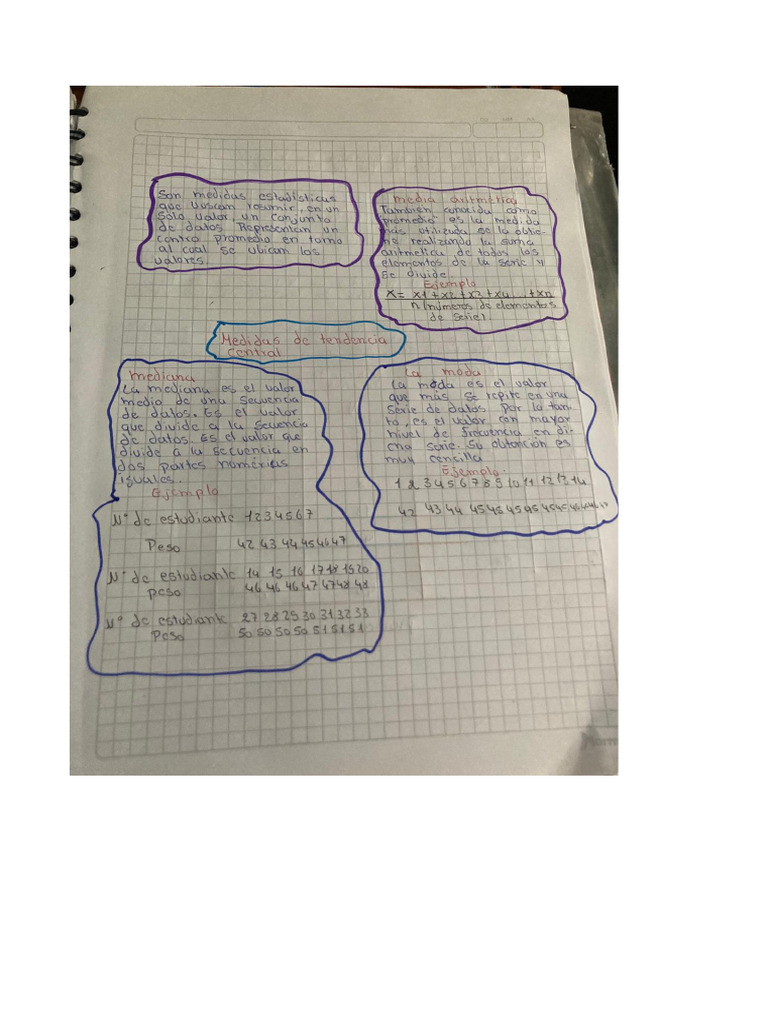 Son medidas estadísticas
que buscan resumir, en un
sólo valor, un conjunto
de datos. Representan un
centro promedio en torno
al cual se ubican los
valores.
Media aritmética
También conocida como
promedio es la medida
más utilizada se la obtie-
ne realizando la suma
aritmetica de todos los
elementos de la serie y
se divide.
Ejemplo
X= X1+X2+X3+X4....+Xn
n (números de elementos
de serie).
Medidas de tendencia
central
Mediana
La mediana es el valor
medio de una secuencia
de datos. Es el valor
que divide a la secuencia
de datos. Es el valor que
divide a la secuencia en
dos partes numéricas
iguales.
Ejemplo
N° de estudiante 1 2 3 4 5 6 7
Peso 42 43 44 45 46 47
N° de estudiante 14 15 16 17 18 19 20
peso 46 46 46 47 47 48 48
N° de estudiante 27 28 29 30 31 32 33
Peso 50 50 50 50 51 51 51
La moda
La moda es el valor
que más se repite en una
serie de datos. Por lo tan-
to, es el valor con mayor
nivel de frecuencia en di-
cha serie. Su obtención es
muy cencilla
Ejemplo.
1 2 3 4 5 6 7 8 9 10 11 12 13 14
42 43 44 45 45 45 45 45 45